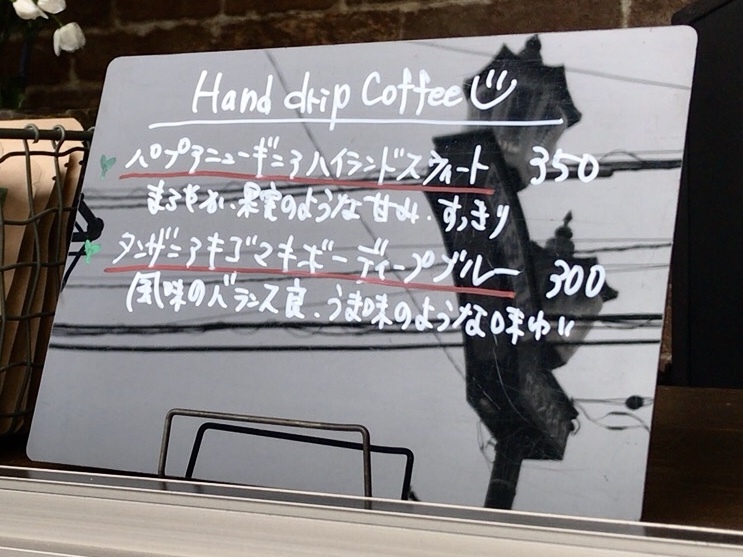 Hand drip Coffee
パプアニューギニアハイランドスウィート 350
まろやか、果実のような甘み・すっきり
タンザニアキゴマキボーディープブルー 300
風味のバランス良、うま味のような味わい